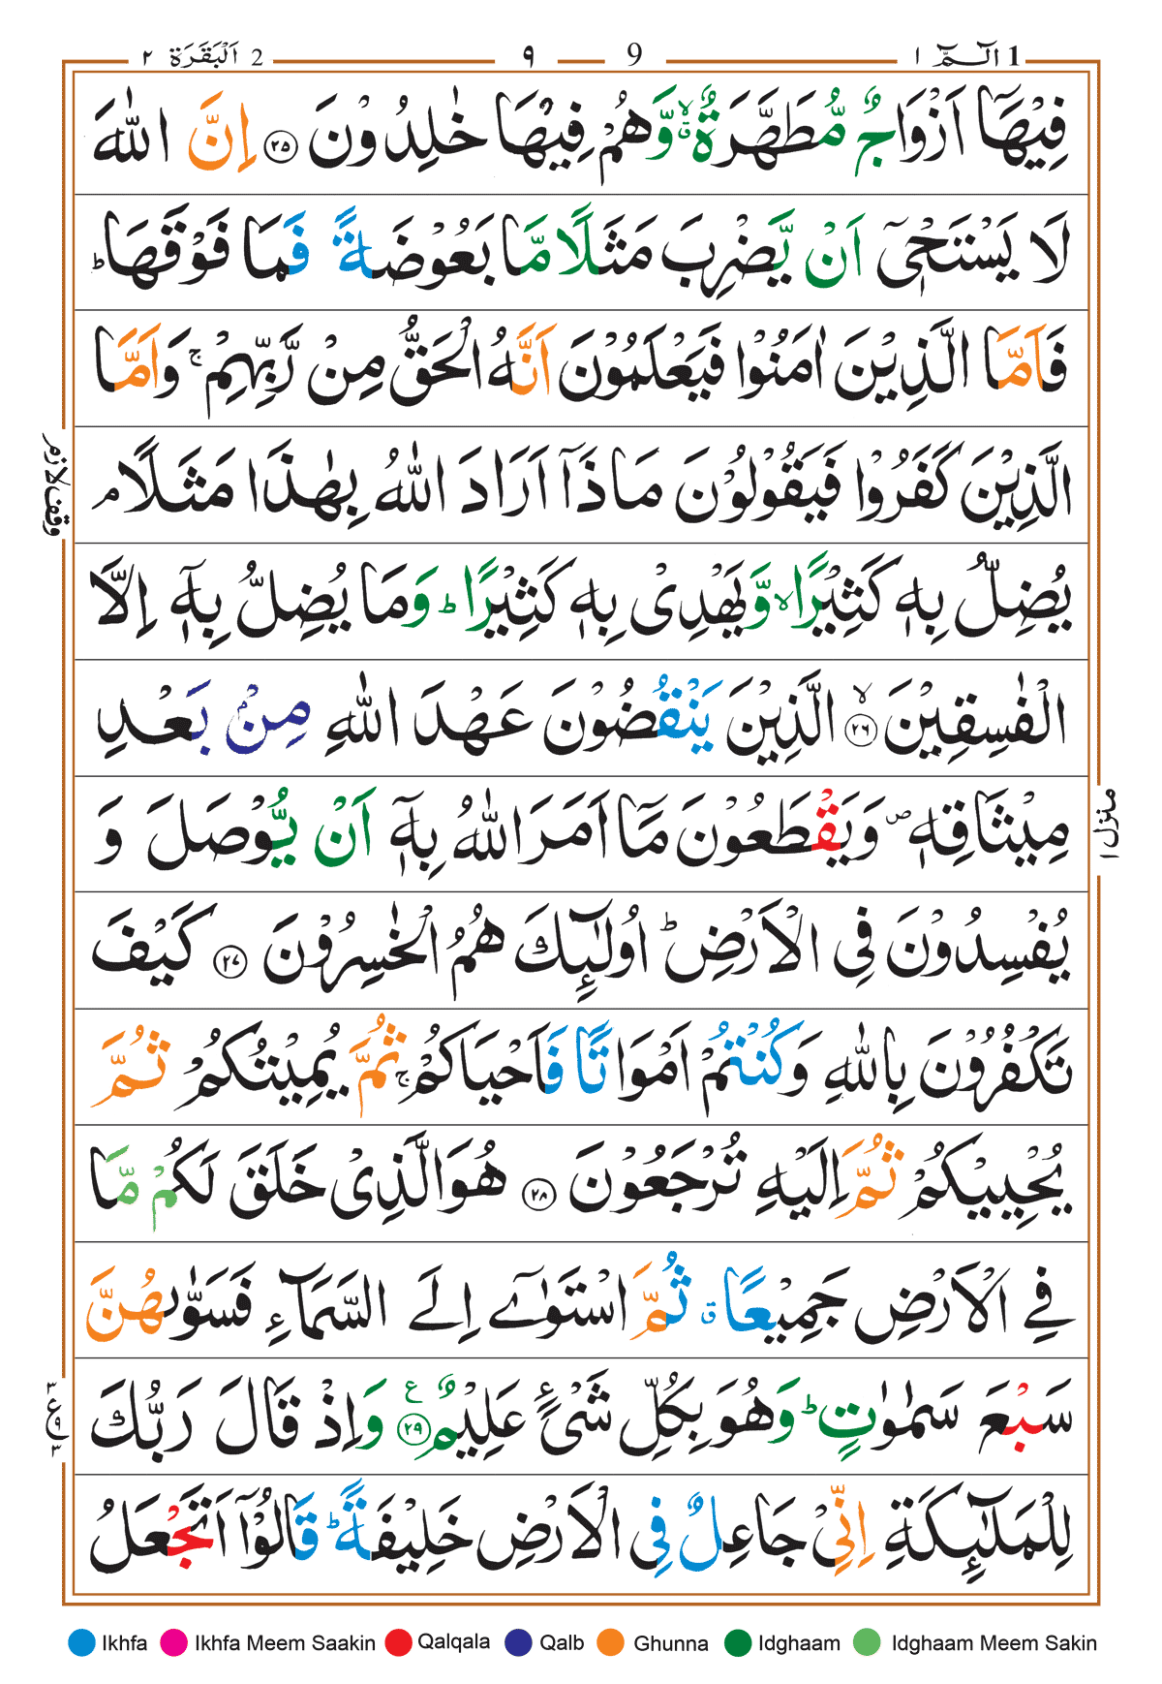 1 الٓمّٓ ١ 9 ٩ 2 اَلْبَقَرَة ٢
فِيْهَاۤ اَزْوَاجٌ مُّطَهَّرَةٌ ۙۗ وَّهُمْ فِيْهَا خٰلِدُوْنَ ۝٢٥ اِنَّ اللّٰهَ
لَا يَسْتَحْيٖۤ اَنْ يَّضْرِبَ مَثَلًا مَّا بَعُوْضَةً فَمَا فَوْقَهَا ؕ
فَاَمَّا الَّذِيْنَ اٰمَنُوْا فَيَعْلَمُوْنَ اَنَّهُ الْحَقُّ مِنْ رَّبِّهِمْ ۚ وَاَمَّا
الَّذِيْنَ كَفَرُوْا فَيَقُوْلُوْنَ مَاذَاۤ اَرَادَ اللّٰهُ بِهٰذَا مَثَلًا ۘ
وقف لازم
يُضِلُّ بِهٖ كَثِيْرًا ۙ وَّيَهْدِىْ بِهٖ كَثِيْرًا ؕ وَمَا يُضِلُّ بِهٖۤ اِلَّا
الْفٰسِقِيْنَ ۙ ۝٢٦ الَّذِيْنَ يَنْقُضُوْنَ عَهْدَ اللّٰهِ مِنْۢ بَعْدِ
مِيْثَاقِهٖ ۪ وَيَقْطَعُوْنَ مَاۤ اَمَرَ اللّٰهُ بِهٖۤ اَنْ يُّوْصَلَ وَ
منزل ١
يُفْسِدُوْنَ فِى الْاَرْضِ ؕ اُولٰٓئِكَ هُمُ الْخٰسِرُوْنَ ۝٢٧ كَيْفَ
تَكْفُرُوْنَ بِاللّٰهِ وَكُنْتُمْ اَمْوَاتًا فَاَحْيَاكُمْ ۚ ثُمَّ يُمِيْتُكُمْ ثُمَّ
يُحْيِيْكُمْ ثُمَّ اِلَيْهِ تُرْجَعُوْنَ ۝٢٨ هُوَ الَّذِىْ خَلَقَ لَكُمْ مَّا
فِى الْاَرْضِ جَمِيْعًا ۗ ثُمَّ اسْتَوٰۤى اِلَى السَّمَآءِ فَسَوّٰىهُنَّ
سَبْعَ سَمٰوٰتٍ ؕ وَهُوَ بِكُلِّ شَىْءٍ عَلِيْمٌ ۝٢٩ ع وَاِذْ قَالَ رَبُّكَ
لِلْمَلٰٓئِكَةِ اِنِّىْ جَاعِلٌ فِى الْاَرْضِ خَلِيْفَةً ؕ قَالُوْۤا اَتَجْعَلُ
Ikhfa Ikhfa Meem Saakin Qalqala Qalb Ghunna Idghaam Idghaam Meem Sakin